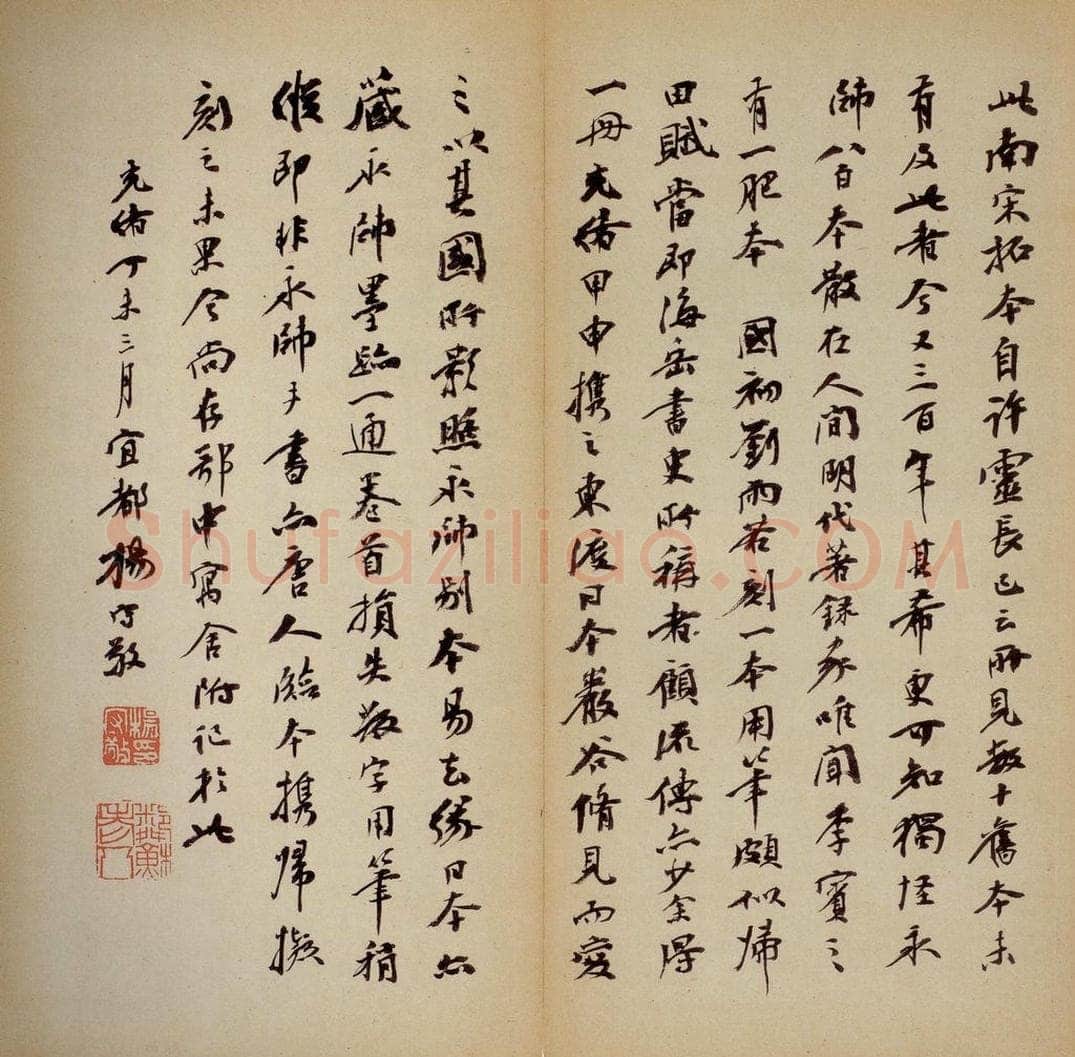 此南宋拓本自許靈長已云所見數十舊本未
有及此者今又三百年其希更可知獨怪永
師八百本散在人間明代著錄家唯聞李賓之
有一肥本 國初劉雨若刻一本用筆頗似歸
田賦當即海岳書史所稱者顧流傳亦少余得
一冊光緒甲申携之東渡日本嚴谷脩見而愛
之以其國所影照永師別本易去緣日本亦
藏永師墨跡一通卷首損失數字用筆稍
後即非永師手書亦唐人臨本携歸擬
刻之未果今尚存鄂中寓舍附記於此
光緒丁未三月宜都楊守敬
Shufaziliao.COM
楊印守敬
鄰蘇老人